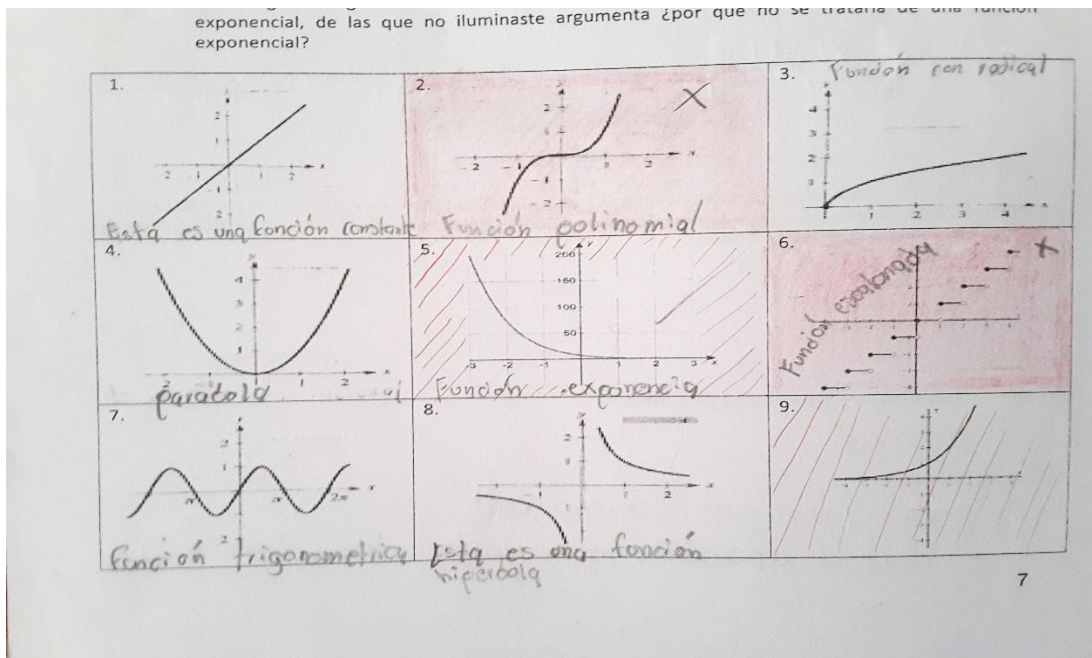 exponencial, de las que no iluminaste argumenta ¿por qué no se trataría de una función
exponencial?
1.
2
1
2 1 1 2 x
-1
2
Está es una función constante
2.
X
2
-2 -1 2 x
-1
-2
Función polinomial
3.
Función con radical
4
3
2
1 2 3 4 x
4.
y
4
3
2
1
1 2 x
parabola
5.
y
200
150
100
50
-3 -2 -1 2 3 x
Función exponencia
6.
X
Función escalonada
7.
y
2
1
π π 2π x
2
función trigonometrica
8.
y
2
-1 1 2 x
Esta es una función
hiperbola
9.
7